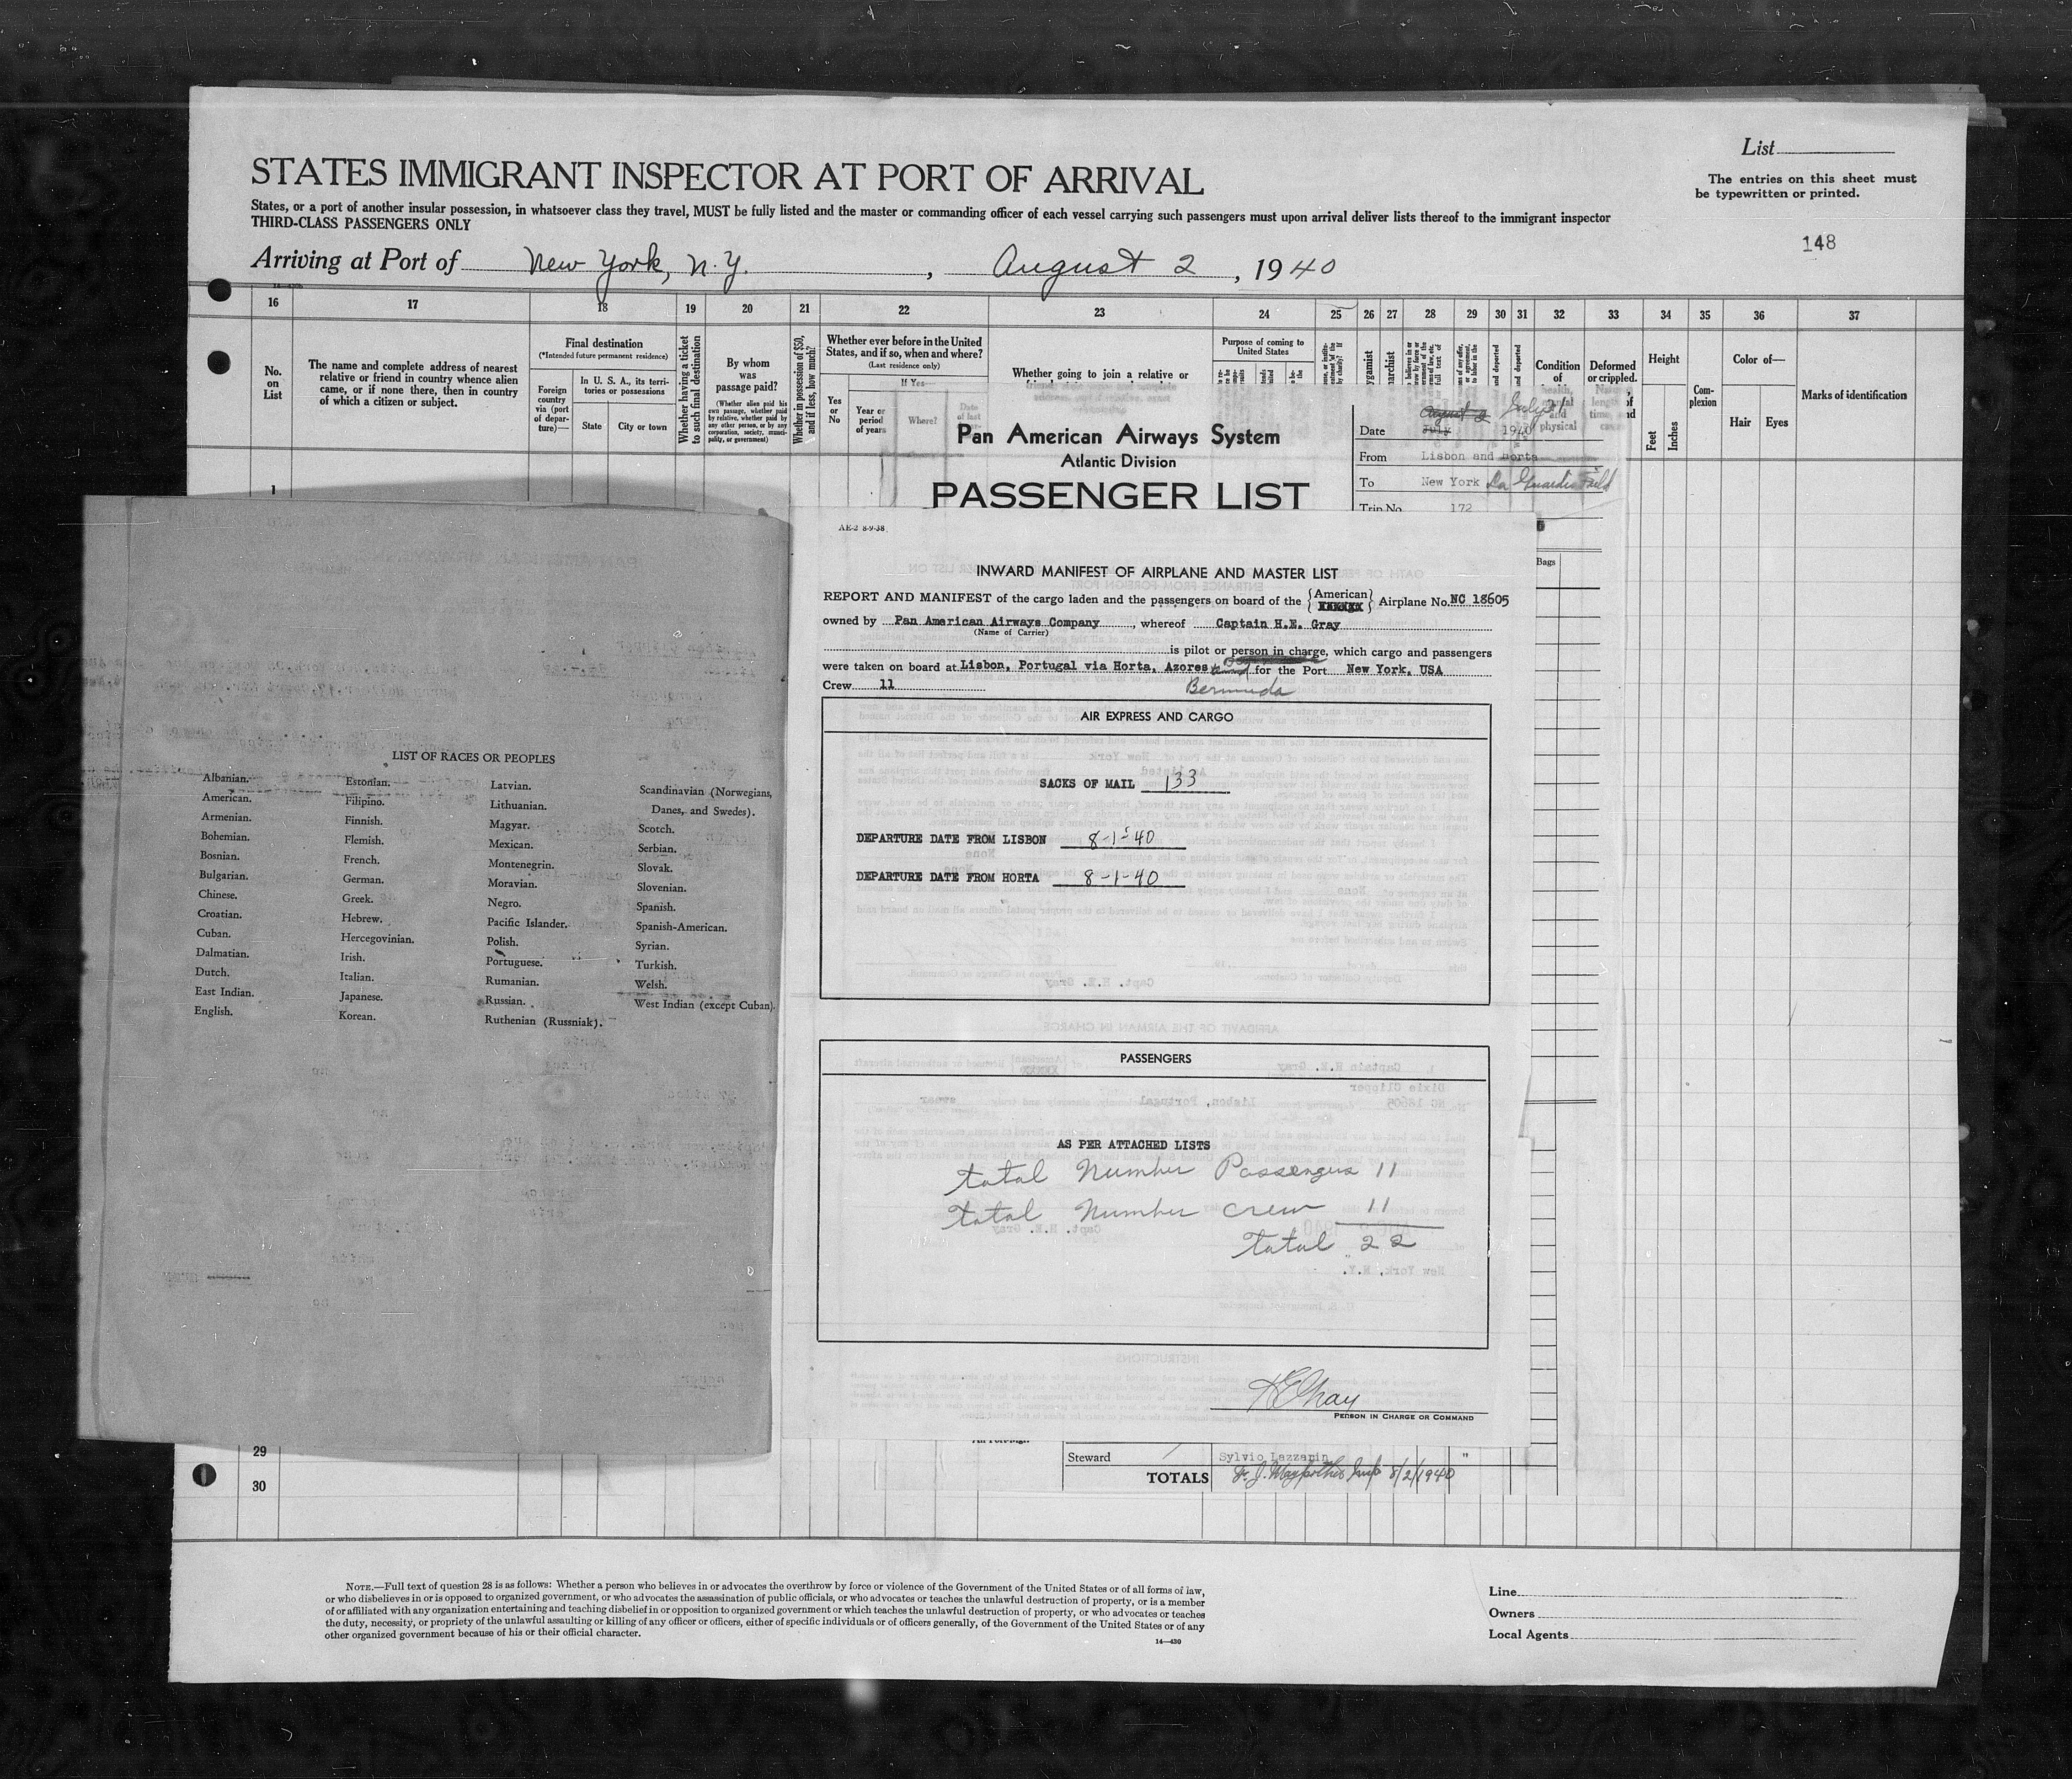 List
The entries on this sheet must
be typewritten or printed.
148
STATES IMMIGRANT INSPECTOR AT PORT OF ARRIVAL
States, or a port of another insular possession, in whatsoever class they travel, MUST be fully listed and the master or commanding officer of each vessel carrying such passengers must upon arrival deliver lists thereof to the immigrant inspector
THIRD-CLASS PASSENGERS ONLY
Arriving at Port of New York, N.Y. , August 2 , 1940
16 17 18 19 20 21 22 23 24 25 26 27 28 29 30 31 32 33 34 35 36 37
No. on List
The name and complete address of nearest
relative or friend in country whence alien
came, or if none there, then in country
of which a citizen or subject.
Final destination
(*Intended future permanent residence)
Foreign
country
via (port
of depar-
ture)—
In U. S. A., its terri-
tories or possessions
State
City or town
Whether having a ticket
to such final destination
By whom
was
passage paid?
(Whether alien paid his
own passage, whether paid
by relative, whether paid by
any other person, or by any
corporation, society, munici-
pality, or government)
Whether in possession of $50,
and if less, how much?
Whether ever before in the United
States, and if so, when and where?
(Last residence only)
Yes
or
No
If Yes—
Year or
period
of years
Where?
Whether going to join a relative or
Purpose of coming to
United States
Condition
of
physical
Deformed
or crippled.
Height
Feet
Inches
Com-
plexion
Color of—
Hair
Eyes
Marks of identification
1
Pan American Airways System
Atlantic Division
PASSENGER LIST
Date July 31 1940
From Lisbon and Horta
To New York La Guardia Field
Trip No. 172
Bags
AE-2 8-9-38
INWARD MANIFEST OF AIRPLANE AND MASTER LIST
REPORT AND MANIFEST of the cargo laden and the passengers on board of the American Airplane No. NC 18605
owned by Pan American Airways Company , whereof Captain H.E. Gray
(Name of Carrier)
is pilot or person in charge, which cargo and passengers
were taken on board at Lisbon, Portugal via Horta, Azores and for the Port New York, USA
Bermuda
Crew 11
AIR EXPRESS AND CARGO
SACKS OF MAIL 133
DEPARTURE DATE FROM LISBON 8-1-40
DEPARTURE DATE FROM HORTA 8-1-40
PASSENGERS
AS PER ATTACHED LISTS
Total Number Passengers 11
Total Number crew 11
Total 22
HEGray
PERSON IN CHARGE OR COMMAND
LIST OF RACES OR PEOPLES
Albanian.
American.
Armenian.
Bohemian.
Bosnian.
Bulgarian.
Chinese.
Croatian.
Cuban.
Dalmatian.
Dutch.
East Indian.
English.
Estonian.
Filipino.
Finnish.
Flemish.
French.
German.
Greek.
Hebrew.
Hercegovinian.
Irish.
Italian.
Japanese.
Korean.
Latvian.
Lithuanian.
Magyar.
Mexican.
Montenegrin.
Moravian.
Negro.
Pacific Islander.
Polish.
Portuguese.
Rumanian.
Russian.
Ruthenian (Russniak).
Scandinavian (Norwegians,
Danes, and Swedes).
Scotch.
Serbian.
Slovak.
Slovenian.
Spanish.
Spanish-American.
Syrian.
Turkish.
Welsh.
West Indian (except Cuban).
29
30
Steward Sylvio Lazzarin "
TOTALS 8/2/1940
NOTE.—Full text of question 28 is as follows: Whether a person who believes in or advocates the overthrow by force or violence of the Government of the United States or of all forms of law,
or who disbelieves in or is opposed to organized government, or who advocates the assassination of public officials, or who advocates or teaches the unlawful destruction of property, or is a member
of or affiliated with any organization entertaining and teaching disbelief in or opposition to organized government or which teaches the unlawful destruction of property, or who advocates or teaches
the duty, necessity, or propriety of the unlawful assaulting or killing of any officer or officers, either of specific individuals or of officers generally, of the Government of the United States or of any
other organized government because of his or their official character.
14—430
Line
Owners
Local Agents